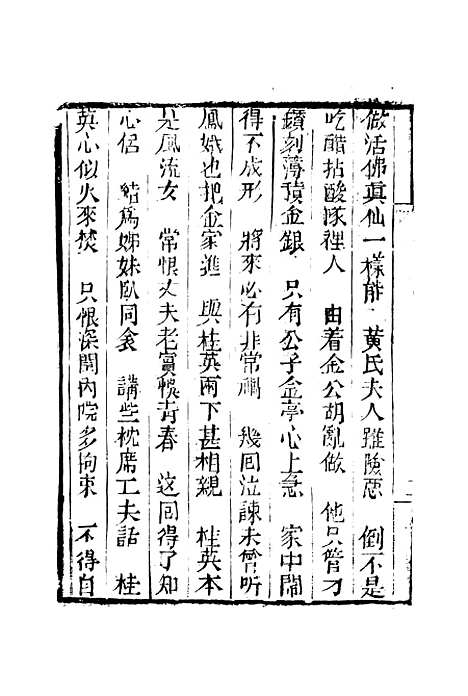 做活佛真仙一樣能 黃氏夫人雖險惡 倒不是
吃醋拈酸隊裡人 由着金公胡亂做 他只管刁
鑽刻薄積金銀 只有公子金亭心上急 家中鬧
得不成形 將來必有非常禍 幾囘泣諫未曾听
鳳嬌也把金家進 與桂英兩下甚相親 桂英本
是風流女 常恨丈夫老賔悞青春 这囘得了知
心侣 結爲姊妹臥同衾 講些枕席工夫話 桂
英心似火來焚 只恨深閨內院多拘束 不得自